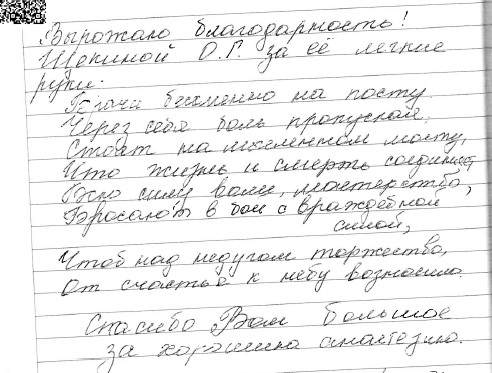 Выражаю благодарность!
Щекиной О.Г. за её легкие
руки.
Врачи бессменно на посту.
Через себя боль пропуская.
Стоят на мосту,
Что жизнь и смерть соединяет
Всю силу воли, мастерства,
Бросают в бой с враждебной
силой,
Чтоб над недугом торжество,
От счастья к небу возносило.
Спасибо Вам большое
за хорошую анастезию.